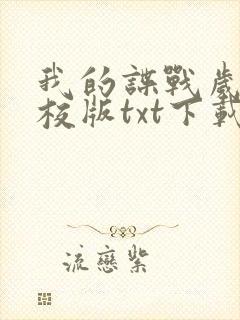 我的諜戰歲
校版txt下載
流戀紫